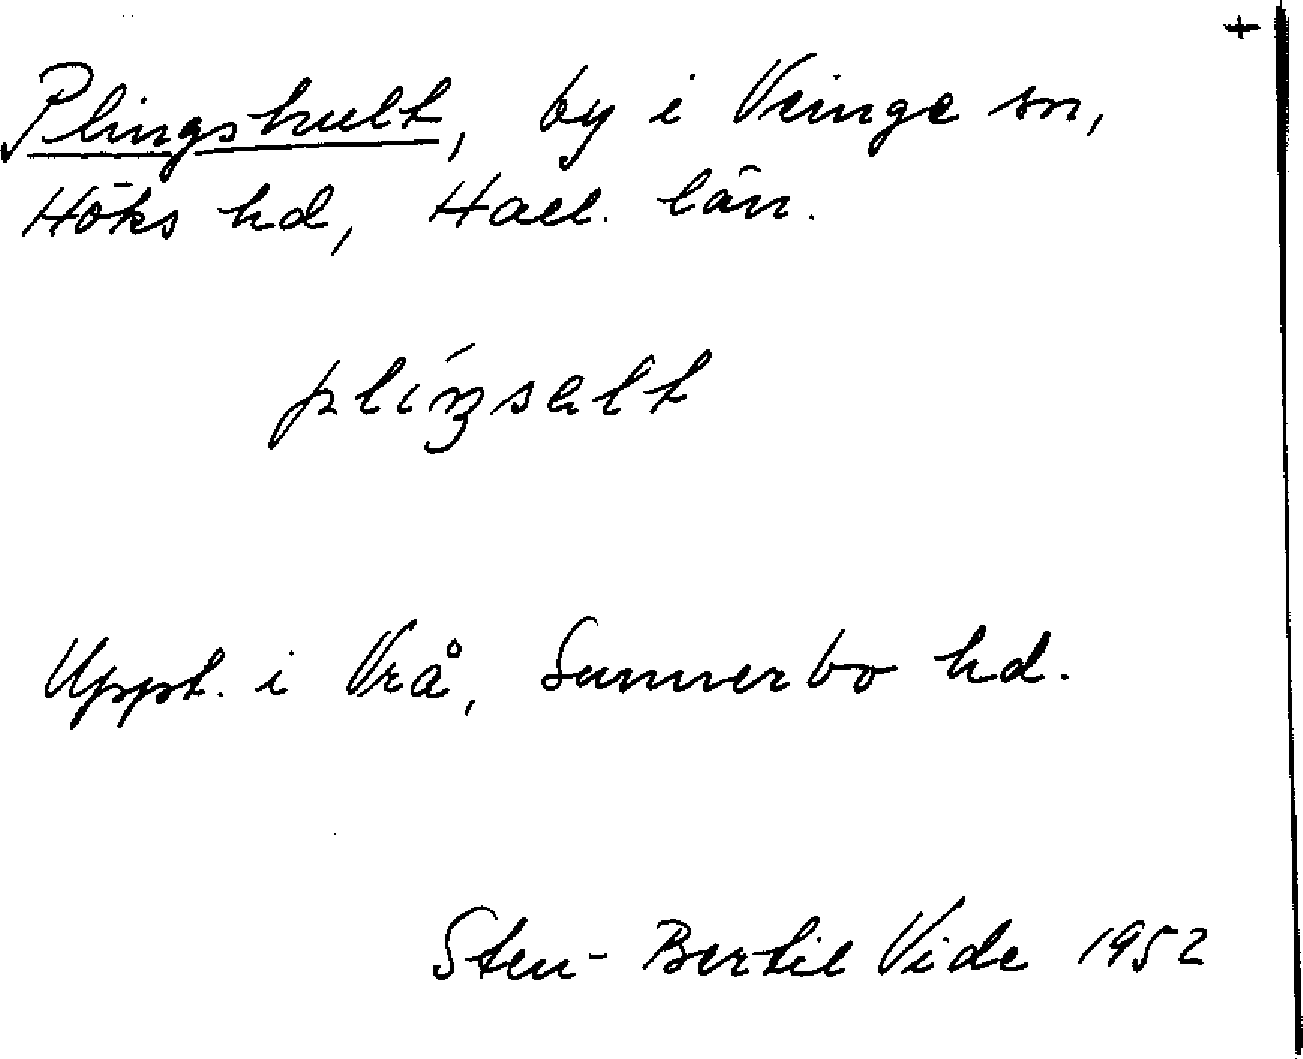 +
Plingshult, by i Veinge sn,
Höks hd, Hall. län.
plíŋsalt
Uppt. i Vrå, Sunnerbo hd.
Sten-Bertil Vide 1952